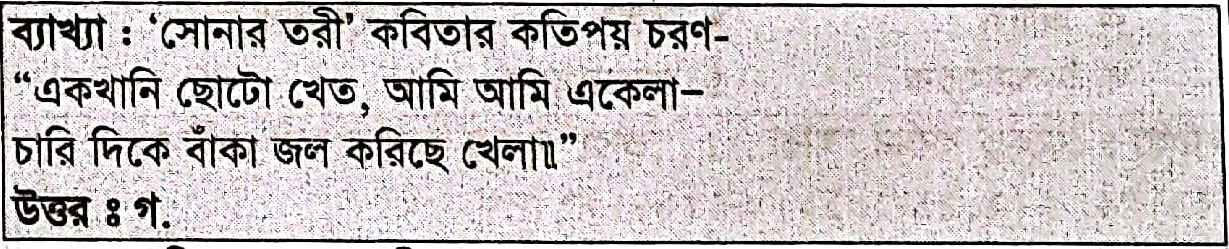 ব্যাখ্যা : ‘সোনার তরী’ কবিতার কতিপয় চরণ-
“একখানি ছোটো খেত, আমি আমি একেলা–
চারি দিকে বাঁকা জল করিছে খেলা॥”
উত্তর ঃ গ.